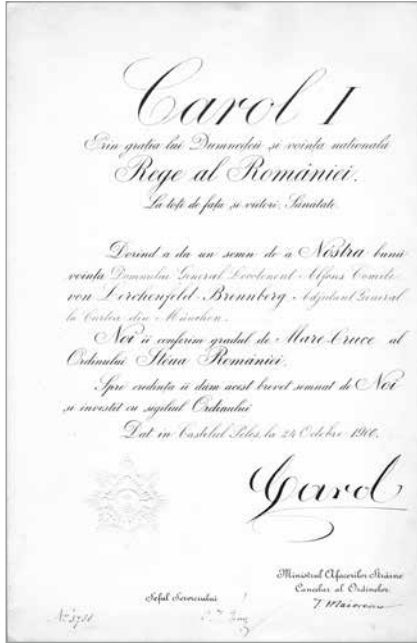 Carol I
Prin gratia lui Dumnedeu si voința natională
Rege al României.
La toți de fața si viitori, Sănatate.
Dorind a da un semn de a Nostra bună
voința Domnului General Locotenent Alfons Comite
von Lerchenfeld-Brennberg Adjutant General
la Curtea din München.
Noi ii conferim gradul de Mare Cruce al
Ordinului Steua României.
Spre credința ii dăm acest brevet semnat de Noi
si investit cu sigiliul Ordinului
Dat in Castelul Peleș, la 24 Octobre 1900.
Carol
Ministrul Afacerilor Străine
Cancelar al Ordinelor.
T. Maiorescu
Șeful Serviciului